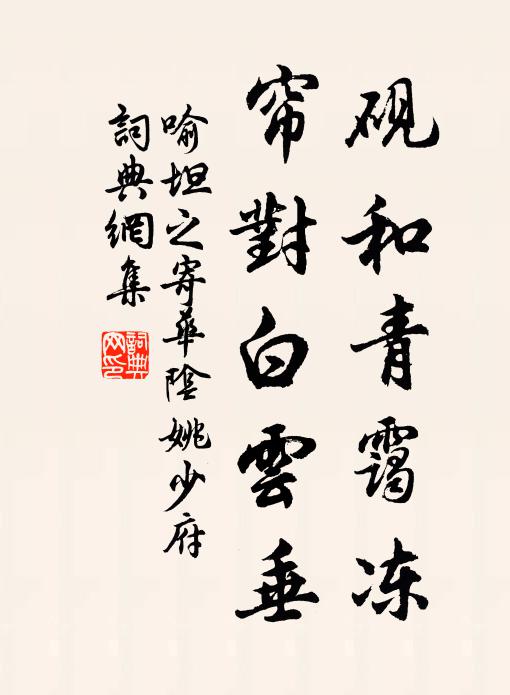 砚和青靄冻
帘對白雲垂
喻坦之寄華陰姚少府
詞典網集
詞典网印